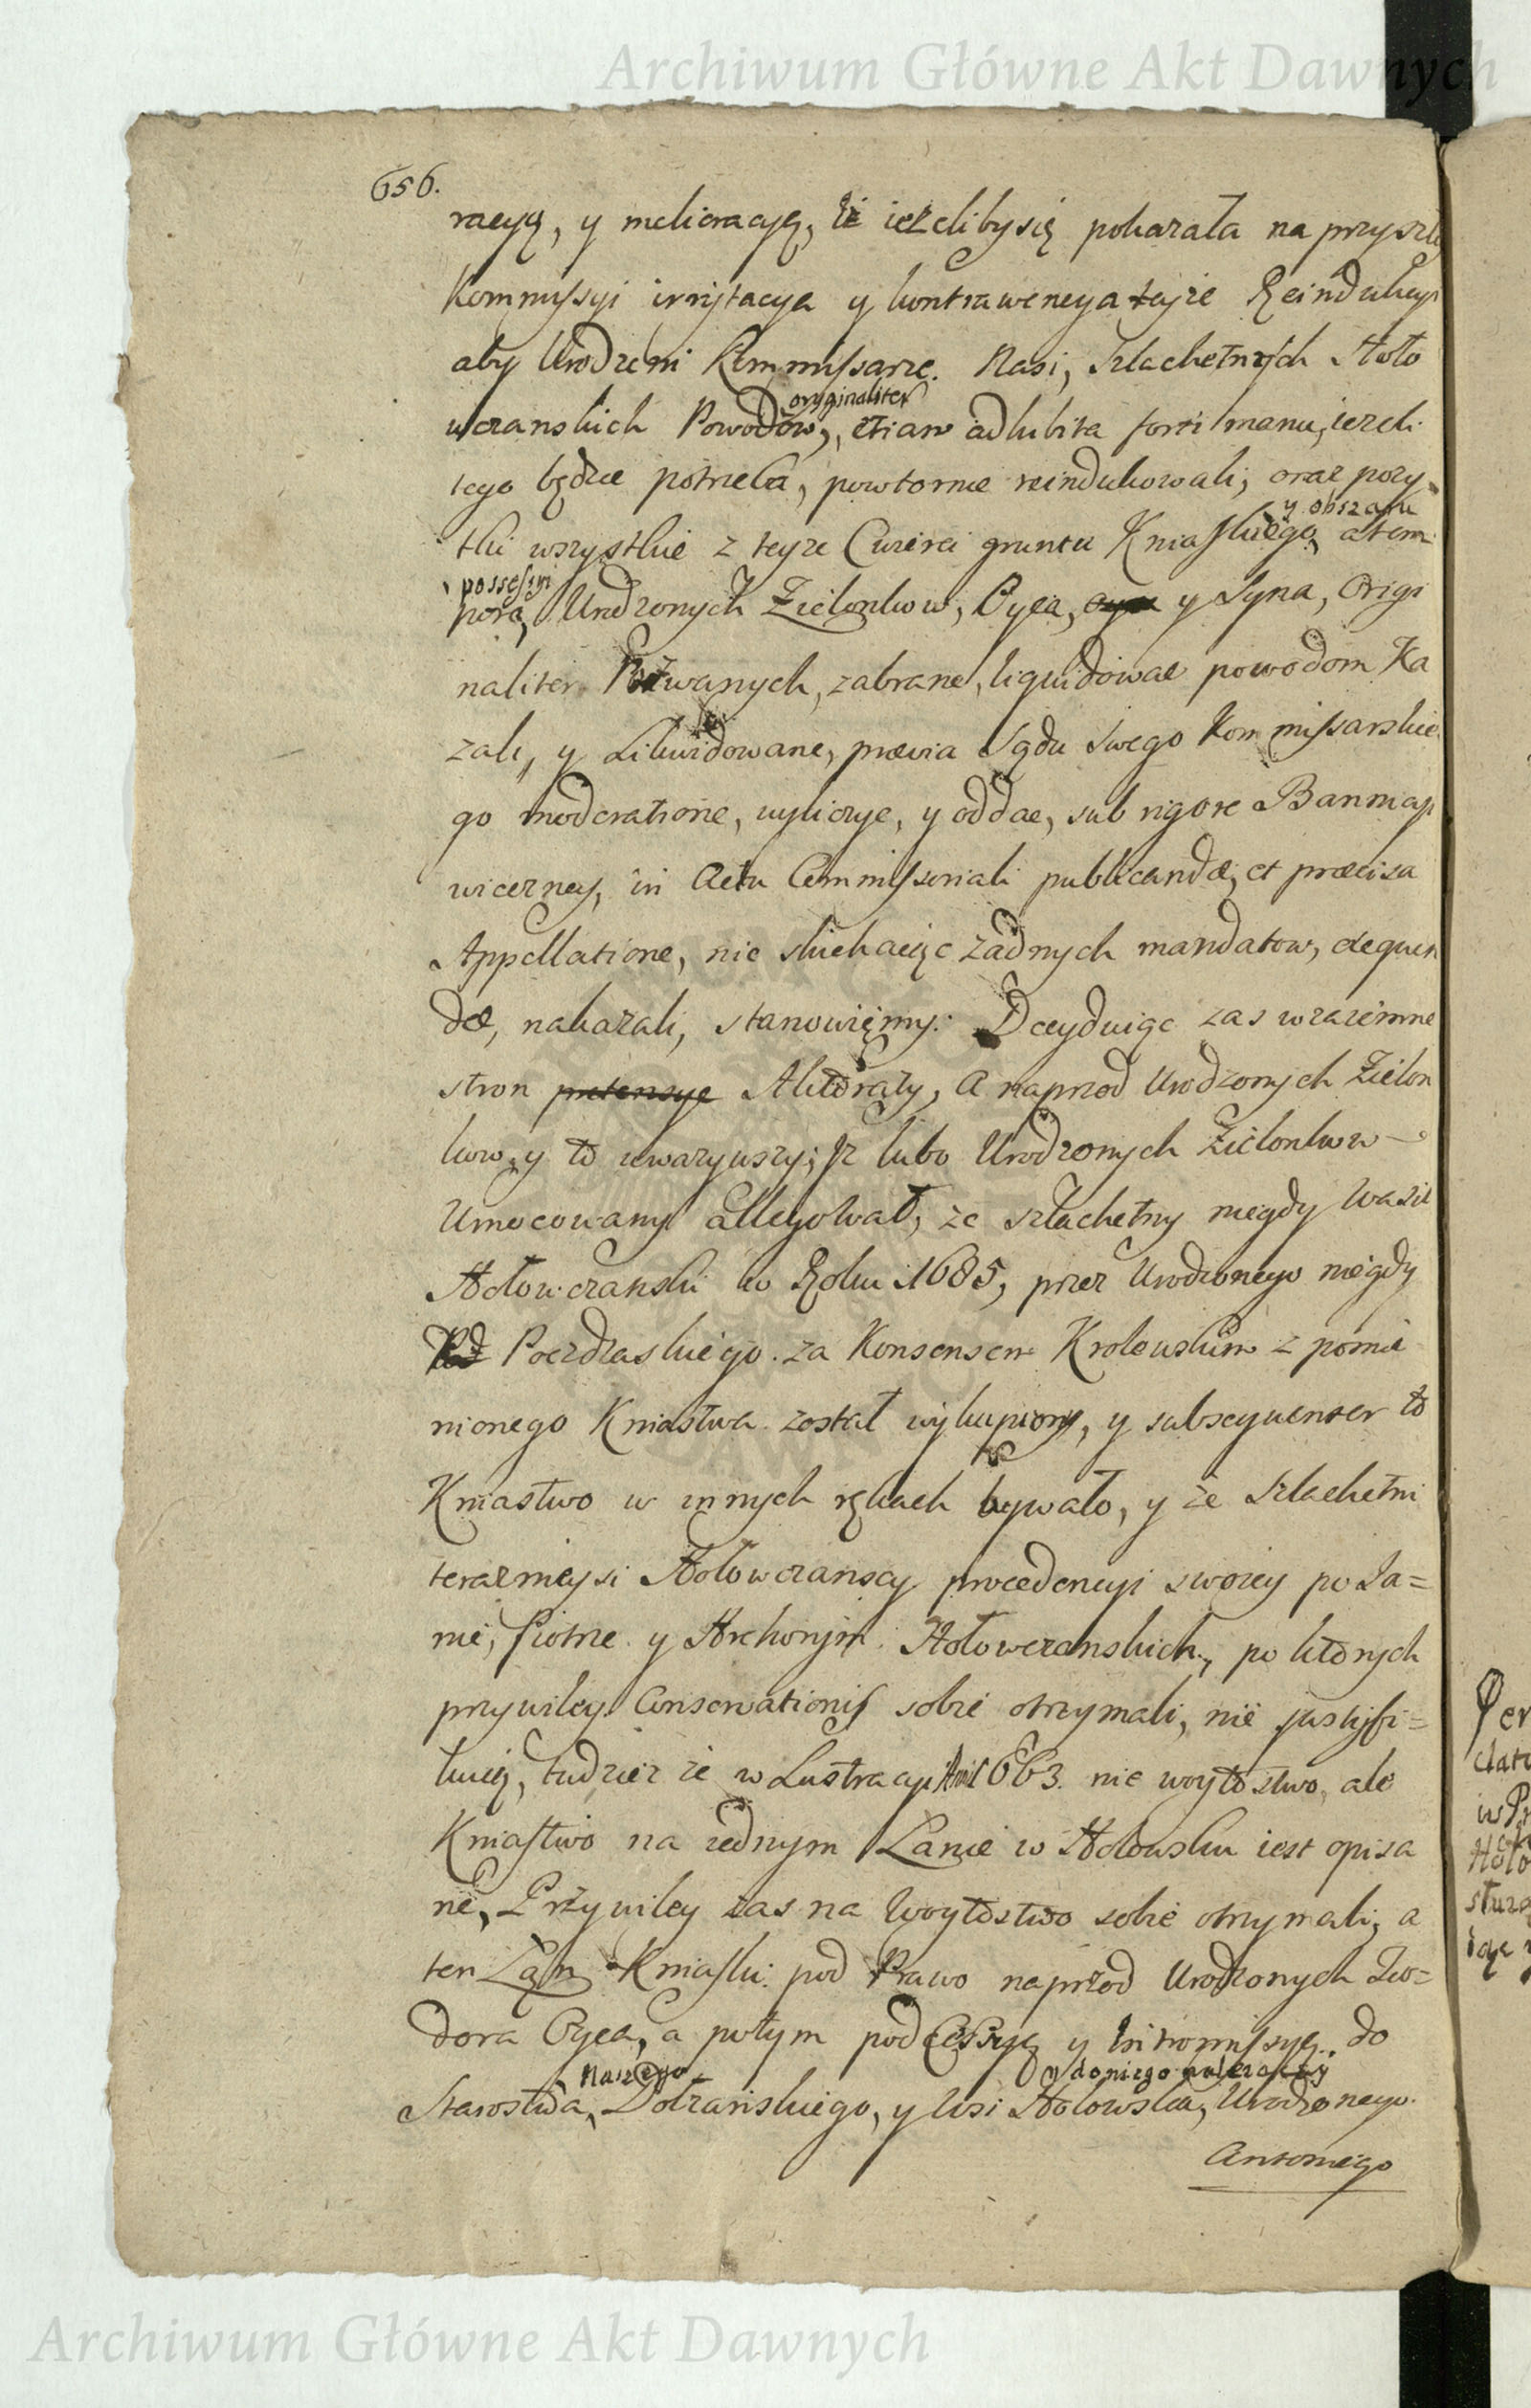 Archiwum Główne Akt Dawnych
656.
racyą, y melioracyą, iż ieżeliby się pokazała na przyszłey
Kommissyi irritacya y kontrawencya teyże Reindukcyi
aby Urodzeni Kommissarze Nasi, Szlachetnych Hoło
wczanskich Powodow, originaliter etiam adhibita forti manu, ieżeli
tego będzie potrzeba, powtornie reindukowali, oraz pozy
tki wszystkie z teyże Cwierci gruntu Kniaskiego, y obszaru a tem
pore possessyi Urodzonych Zielonkow, Oyca, y Syna, Origi
naliter Pozwanych, zabrane, liquidowac powodom Ka
zali, y Likwidowane, prævia Sądu Swego Kommissarskie
go moderatione, wyliczyc, y oddac, sub rigore Bannicyi
wieczney, in Actu Commissoriali publicandæ, et præcisa
Appellatione, nie słuchaiąc żadnych mandatow, exequen
dæ, nakazali, stanowięmy. Decyduiąc zas wzaiemne
stron pretensye Aktoraty, a naprzod Urodzonych Zielon
kow, y to uwazywszy; Iz lubo Urodzonych Zielonkow
Umocowany allegował, że szlachetny niegdy Wasil
Hołowczanski w Roku 1685, przez Urodzonego niegdy
Poczdzaskiego za Konsensem Krolewskim z pomie
nionego Kniastwa został wykupiony, y subsequenter to
Kniastwo w innych rękach bywało, y że Szlachetni
teraznieysi Hołowczanscy procedencyi swoiey po Ja=
nie, Piotrze y Hrehorym Hołowczanskich, po ktorych
przywiley Conservationis sobie otrzymali, nie justyfi=
kuią, tudzież że w Lustracyi Anni 1663. nie woytostwo, ale
Kniastwo na iednym Łanie w Hołowsku iest opisa
ne, Przywiley zas na Woytostwo sobie otrzymali, a
ten Łan Kniaski pod Prawo naprzod Urodzonych Teo=
dora Oyca, a potym pod Cessyę y Intromissyę do
Starostwa Naszego Dolzanskiego, y Wsi Hołowska, do niego należący Urodzonego
Antoniego
Archiwum Główne Akt Dawnych